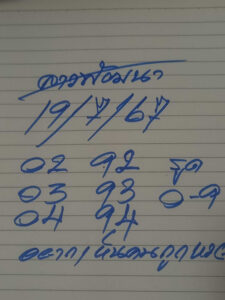 สาวพัฒนา
19/7/67
02 92 รูด
03 93 0-9
04 94
อยากเห็นคนถูกหวย